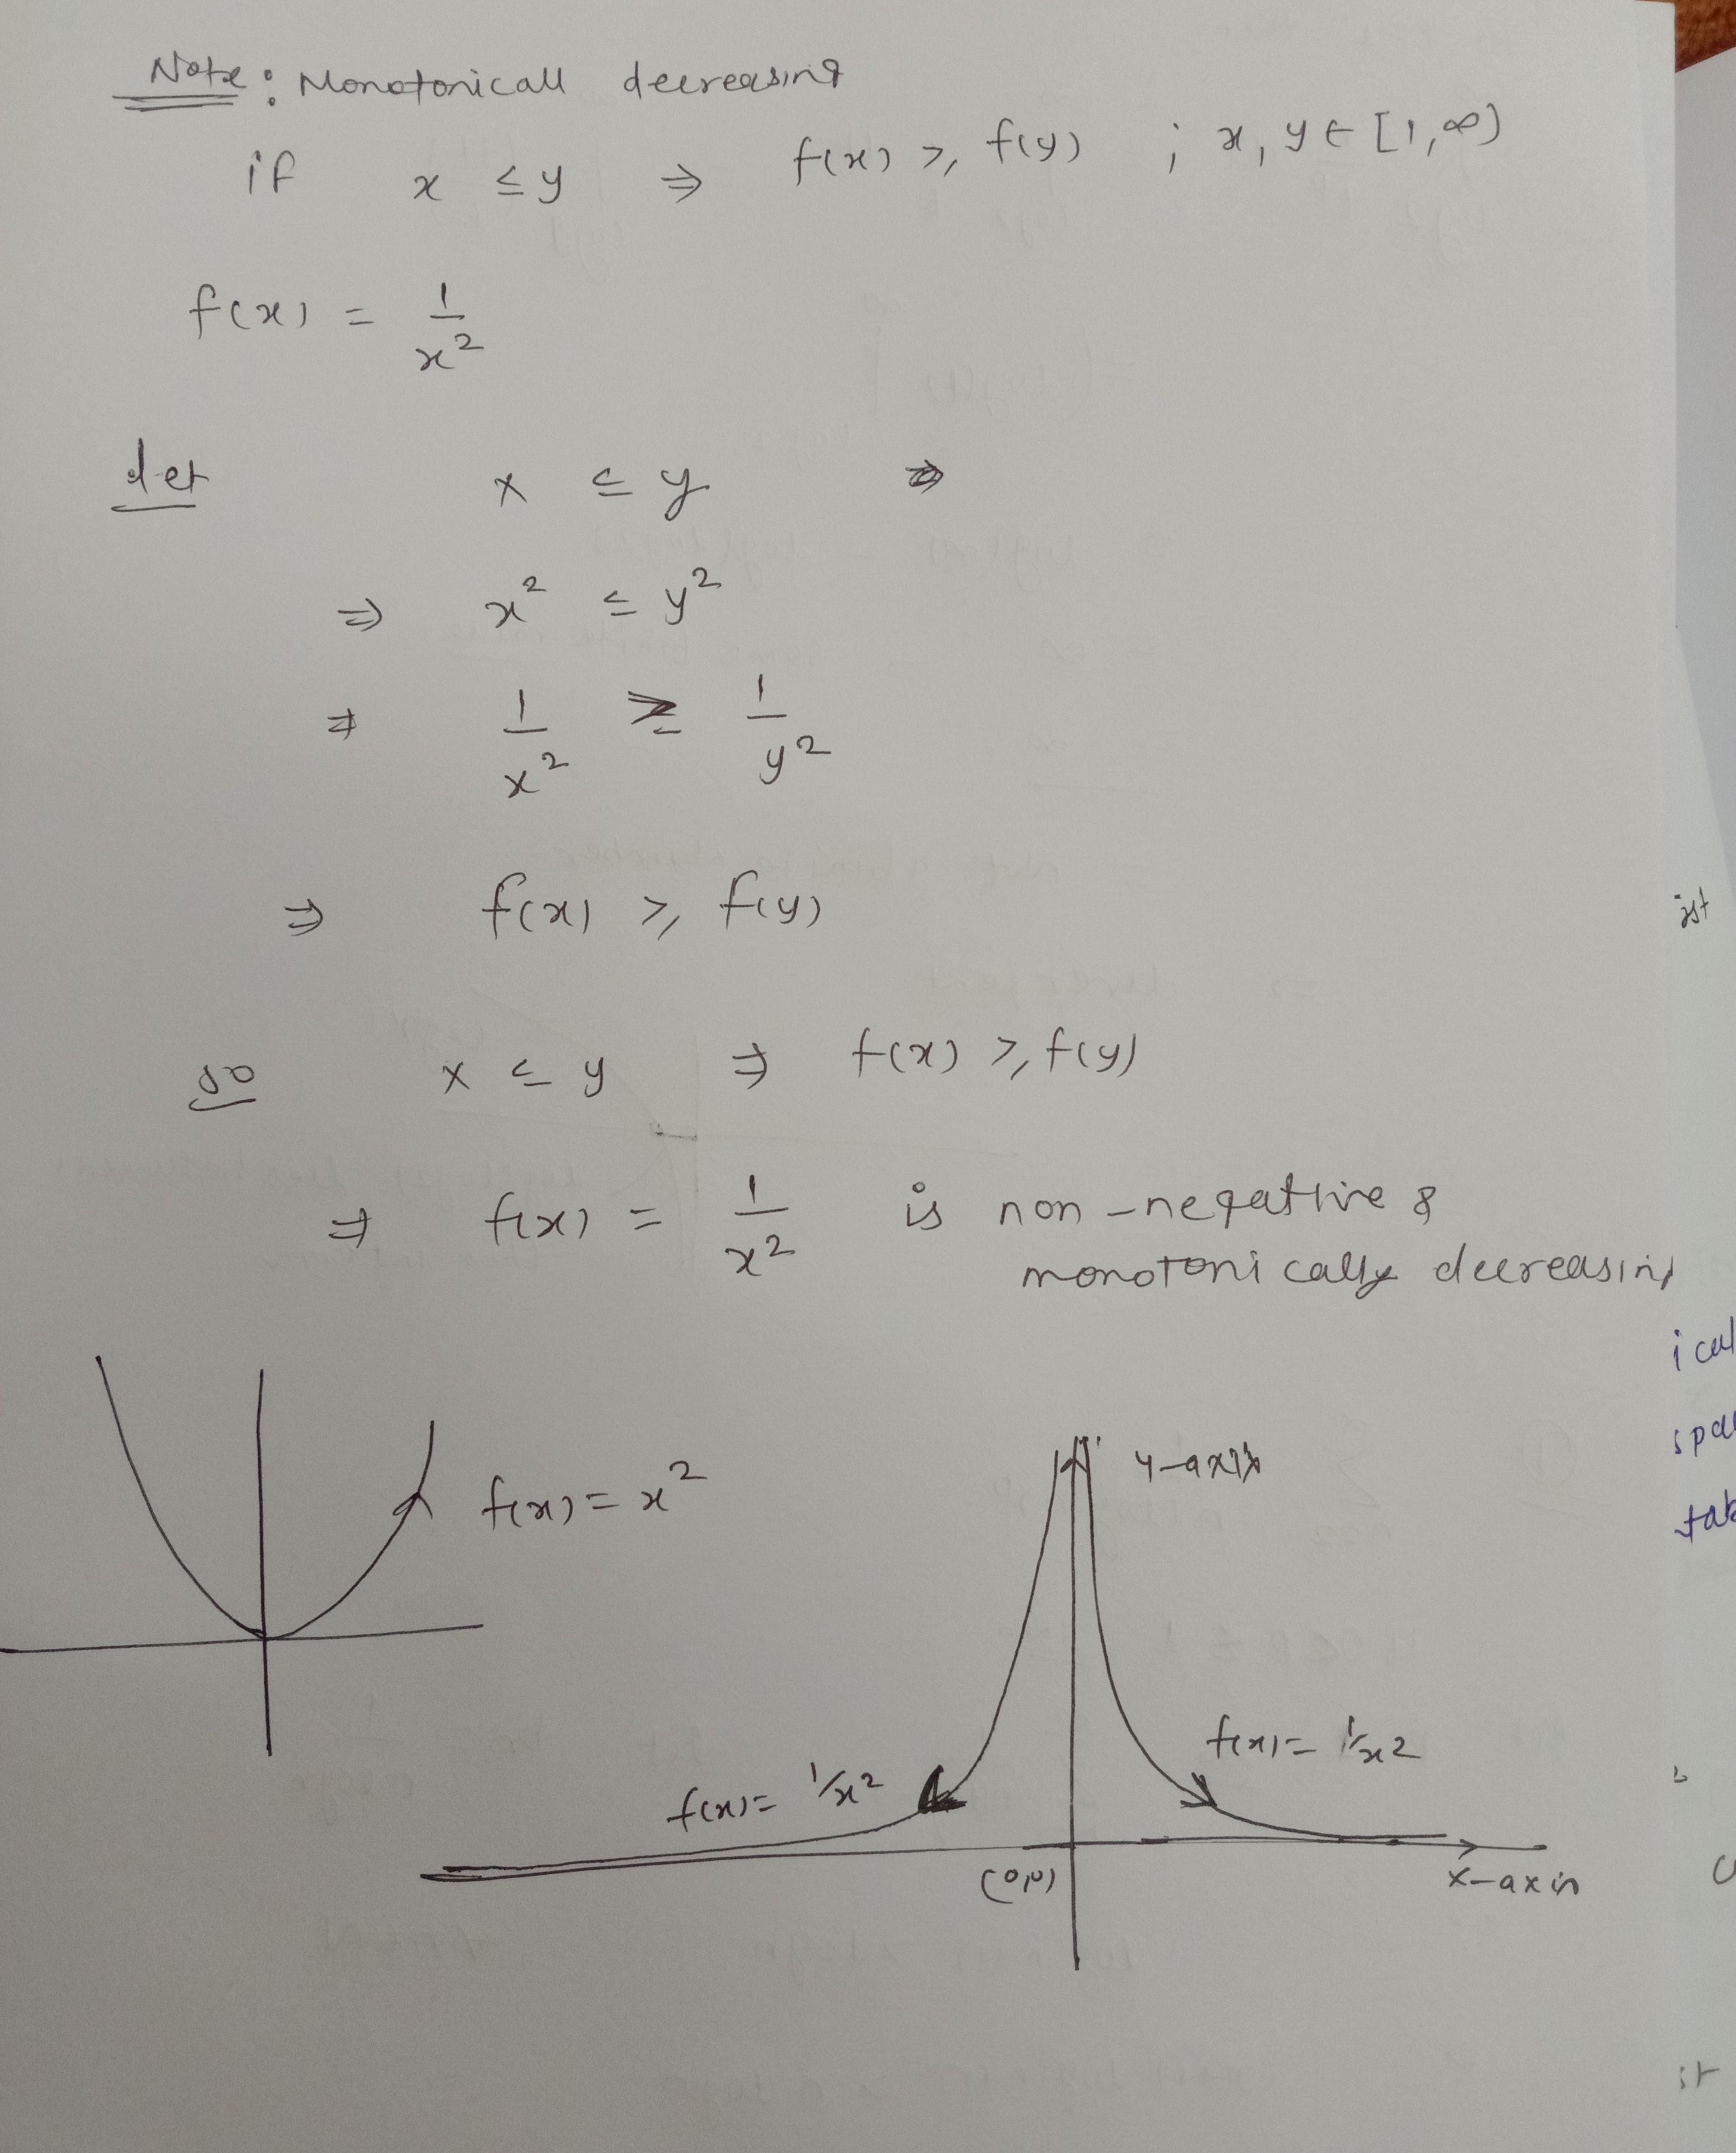 Note: Monotonicall decreasing
if x ≤ y ⇒ f(x) ≥ f(y) ; x, y ∈ [1, ∞)
f(x) = 1/x²
let x ≤ y ⇒
⇒ x² ≤ y²
⇒ 1/x² ≥ 1/y²
⇒ f(x) ≥ f(y)
ist
so x ≤ y ⇒ f(x) ≥ f(y)
⇒ f(x) = 1/x² is non-negative &
monotonically decreasing
ical
spa
tak
f(x) = x²
y-axis
f(x) = 1/x²
f(x) = 1/x²
(0,0)
x-axis